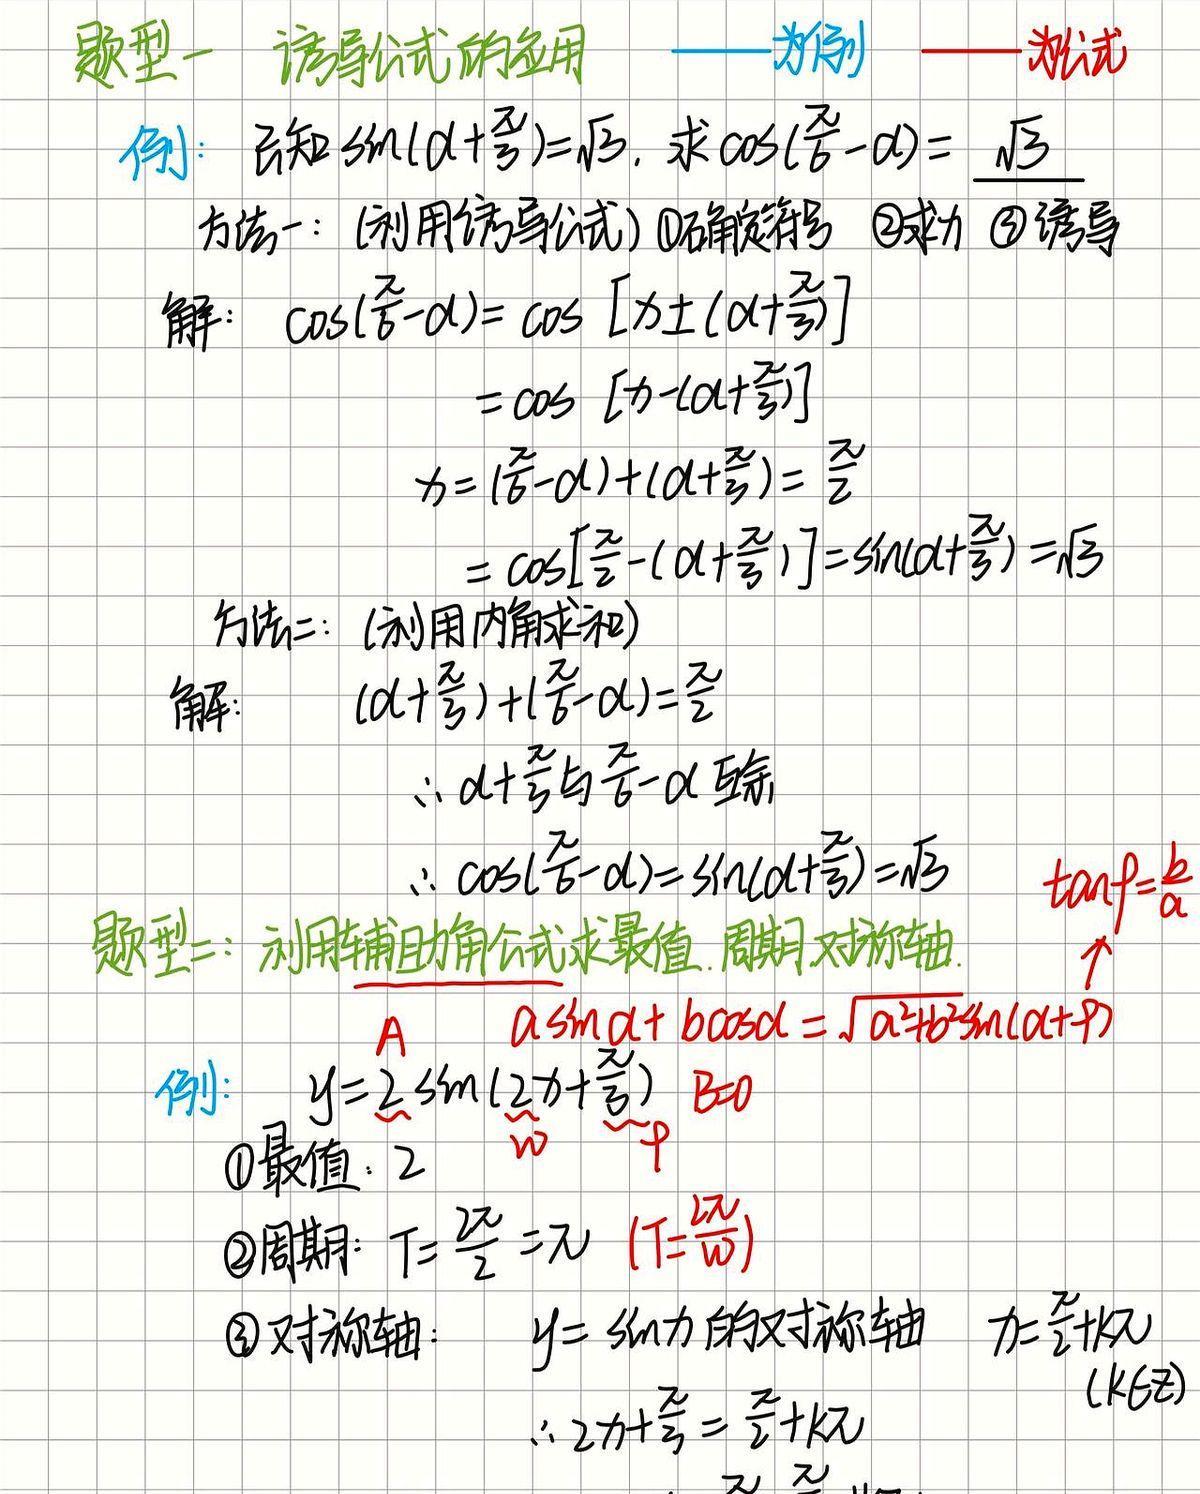 题型一 诱导公式的应用 ——为例 ——为公式
例: 已知sin(α+π/3)=√3. 求cos(π/6-α)= √3
方法一: (利用诱导公式) ①确定符号 ②求x ③诱导
解: cos(π/6-α)= cos [x±(α+π/3)]
=cos [x-(α+π/3)]
x=(π/6-α)+(α+π/3)=π/2
=cos[π/2-(α+π/3)]=sin(α+π/3)=√3
方法二: (利用内角求和)
解: (α+π/3)+(π/6-α)=π/2
∴α+π/3与π/6-α互余
∴cos(π/6-α)=sin(α+π/3)=√3
tanφ=b/a
题型二: 利用辅助角公式求最值.周期.对称轴.
A asinα+bcosα=√(a²+b²)sin(α+φ)
例: y=2sin(2x+π/3) B=0
w φ
①最值: 2
②周期: T=2π/2=π (T=2π/w)
③对称轴: y=sinx的对称轴 x=π/2+kπ
(k∈Z)
∴2x+π/3=π/2+kπ